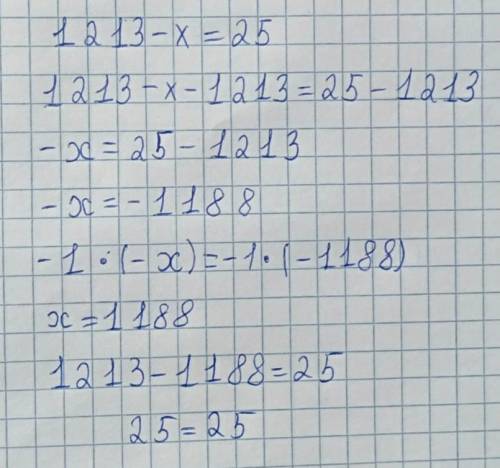 1213-x=25
1213-x-1213=25-1213
-x=25-1213
-x=-1188
-1·(-x)=-1·(-1188)
x=1188
1213-1188=25
25=25